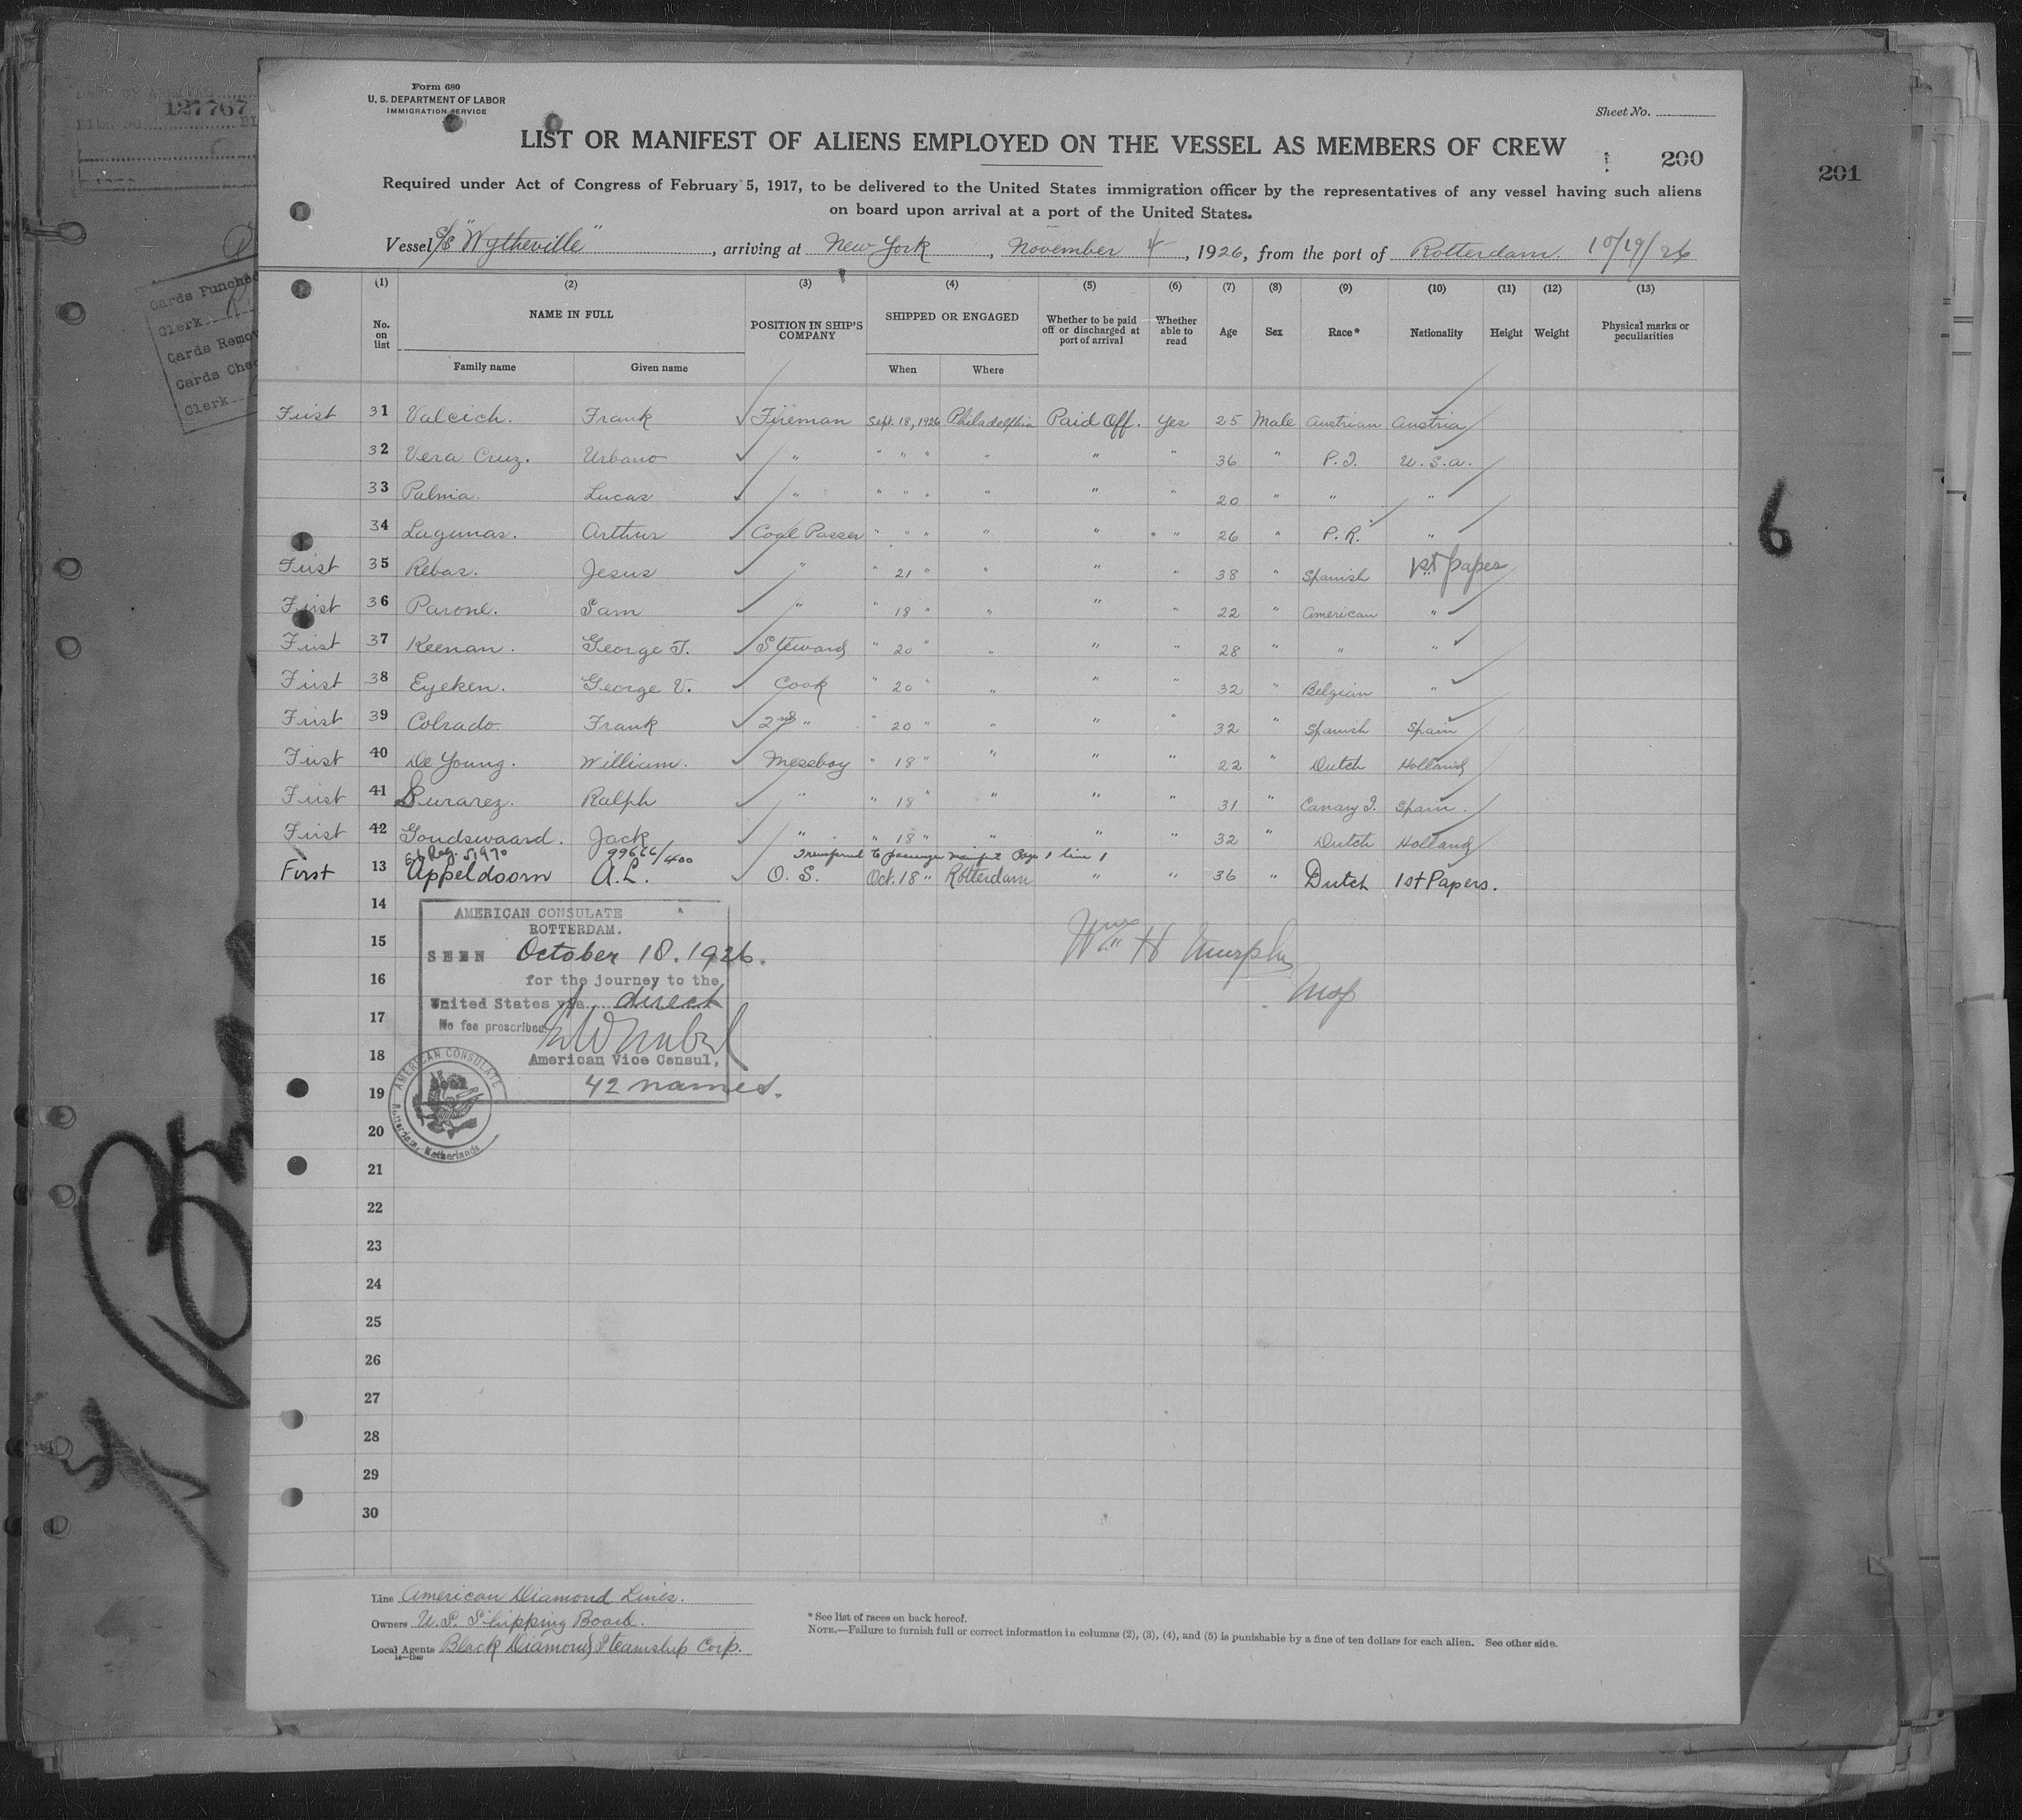 Form 680
U. S. DEPARTMENT OF LABOR
IMMIGRATION SERVICE
Sheet No.
127767
LIST OR MANIFEST OF ALIENS EMPLOYED ON THE VESSEL AS MEMBERS OF CREW
200
201
Required under Act of Congress of February 5, 1917, to be delivered to the United States immigration officer by the representatives of any vessel having such aliens
on board upon arrival at a port of the United States.
Vessel S/S "Wytheville", arriving at New York, November 4, 1926, from the port of Rotterdam. 10/19/26
Cards Punched
Clerk
Cards Remov
Cards Chec
Clerk
(1) (2) (3) (4) (5) (6) (7) (8) (9) (10) (11) (12) (13)
No. on list NAME IN FULL POSITION IN SHIP'S COMPANY SHIPPED OR ENGAGED Whether to be paid off or discharged at port of arrival Whether able to read Age Sex Race* Nationality Height Weight Physical marks or peculiarities
Family name Given name When Where
First 31 Valcich. Frank ✓ Fireman Sept. 18, 1926 Philadelphia Paid Off. Yes 25 Male Austrian Austria
32 Vera Cruz. Urbano ✓ " " " " " " " 36 " P. I. U. S. A.
33 Palma. Lucas ✓ " " " " " " " 20 " " "
34 Lagunas. Arthur ✓ Coal Passer " " " " " " 26 " P. R. "
First 35 Rebas. Jesus ✓ " " 21 " " " " 38 " Spanish 1st papes
First 36 Parone. Sam ✓ " " 18 " " " " 22 " American "
First 37 Keenan. George T. ✓ Steward " 20 " " " " 28 " " "
First 38 Eyeken. George V. ✓ Cook " 20 " " " " 32 " Belgian "
First 39 Colrado. Frank ✓ 2nd " " 20 " " " " 32 " Spanish Spain
First 40 De Young. William. ✓ Messboy " 18 " " " " 22 " Dutch Holland
First 41 Surarez. Ralph ✓ " " 18 " " " " 31 " Canary I. Spain.
First 42 Goudswaard. Jack ✓ " " 18 " " " " 32 " Dutch Holland
Reg. 51970 99666/400 Transferred to passenger manifest Page 1 line 1
First 13 Appeldoorn A. L. ✓ O. S. Oct. 18 " Rotterdam " " 36 " Dutch 1st Papers.
14
15
16
17
18
19
20
21
22
23
24
25
26
27
28
29
30
AMERICAN CONSULATE
ROTTERDAM.
SEEN October 18. 1926.
for the journey to the
United States via direct
No fee prescribed
American Vice Consul,
42 names.
AMERICAN CONSULATE
Rotterdam, Netherlands
Wm H Murphy
6
Line American Diamond Lines.
Owners U. S. Shipping Board.
Local Agents Black Diamond Steamship Corp.
* See list of races on back hereof.
NOTE.—Failure to furnish full or correct information in columns (2), (3), (4), and (5) is punishable by a fine of ten dollars for each alien. See other side.